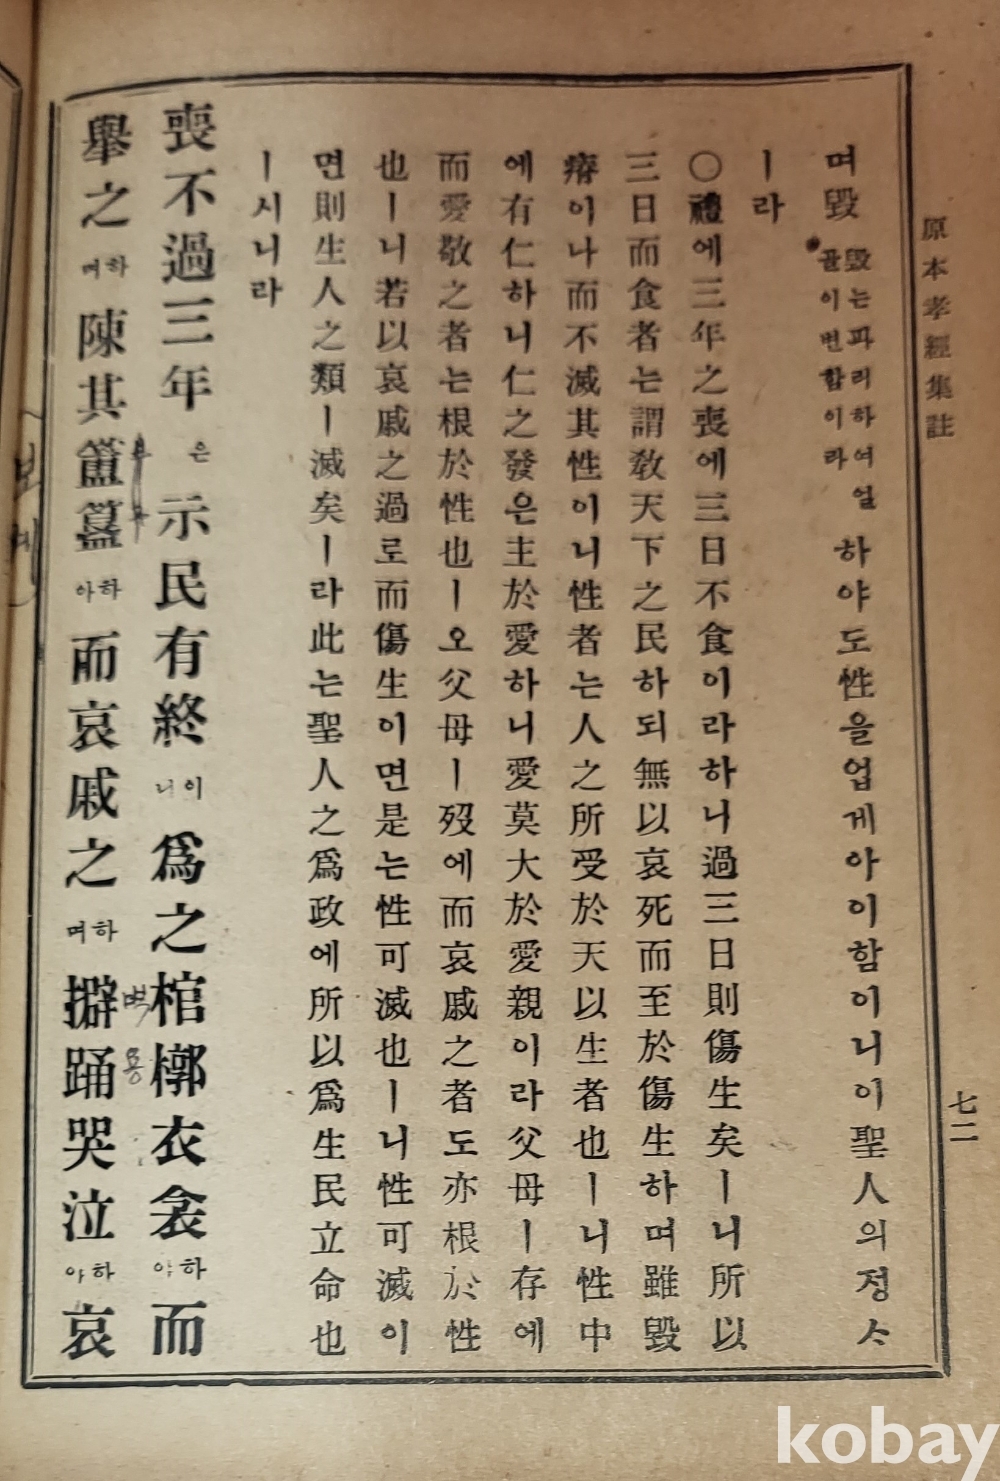 原本孝經集註
七二
며毁 毁는파리하여얼골이변함이라 하야도性을업게아이함이니이聖人의졍ᄉ
ㅣ라
○禮에三年之喪에三日不食이라하니過三日則傷生矣ㅣ니所以
三日而食者는謂敎天下之民하되無以哀死而至於傷生하며雖毁
瘠이나而不滅其性이니性者는人之所受於天以生者也ㅣ니性中
에有仁하니仁之發은主於愛하니愛莫大於愛親이라父母ㅣ存에
而愛敬之者는根於性也ㅣ오父母ㅣ歿에而哀戚之者도亦根於性
也ㅣ니若以哀戚之過로而傷生이면是는性可滅也ㅣ니性可滅이
면則生人之類ㅣ滅矣ㅣ라此는聖人之爲政에所以爲生民立命也
ㅣ시니라
喪不過三年은示民有終이니爲之棺槨衣衾하야而
擧之하며陳其簠簋하야而哀戚之하며擗踊哭泣하야哀
보궤
벽용
kobay